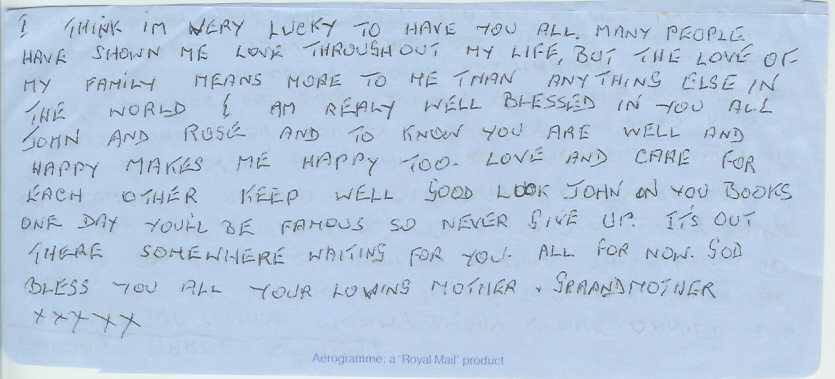 I THINK IM VERY LUCKY TO HAVE YOU ALL. MANY PEOPLE
HAVE SHOWN ME LOVE THROUGHOUT MY LIFE, BUT THE LOVE OF
MY FAMILY MEANS MORE TO ME THAN ANYTHING ELSE IN
THE WORLD I AM REALY WELL BLESSED IN YOU ALL
JOHN AND ROSE AND TO KNOW YOU ARE WELL AND
HAPPY MAKES ME HAPPY TOO. LOVE AND CARE FOR
EACH OTHER KEEP WELL GOOD LOOK JOHN ON YOU BOOKS
ONE DAY YOU'LL BE FAMOUS SO NEVER GIVE UP. IT'S OUT
THERE SOMEWHERE WAITING FOR YOU. ALL FOR NOW. GOD
BLESS YOU ALL YOUR LOVING MOTHER & GRAANDMOTHER
XXXXX
Aerogramme: a 'Royal Mail' product